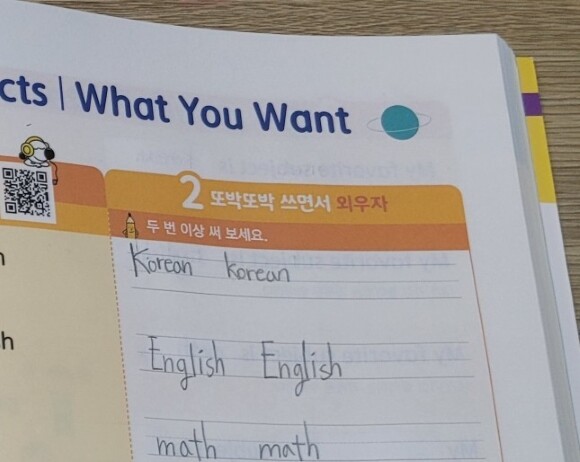 cts | What You Want
2 또박또박 쓰면서 외우자
두 번 이상 써 보세요.
Korean korean
English English
h
math math